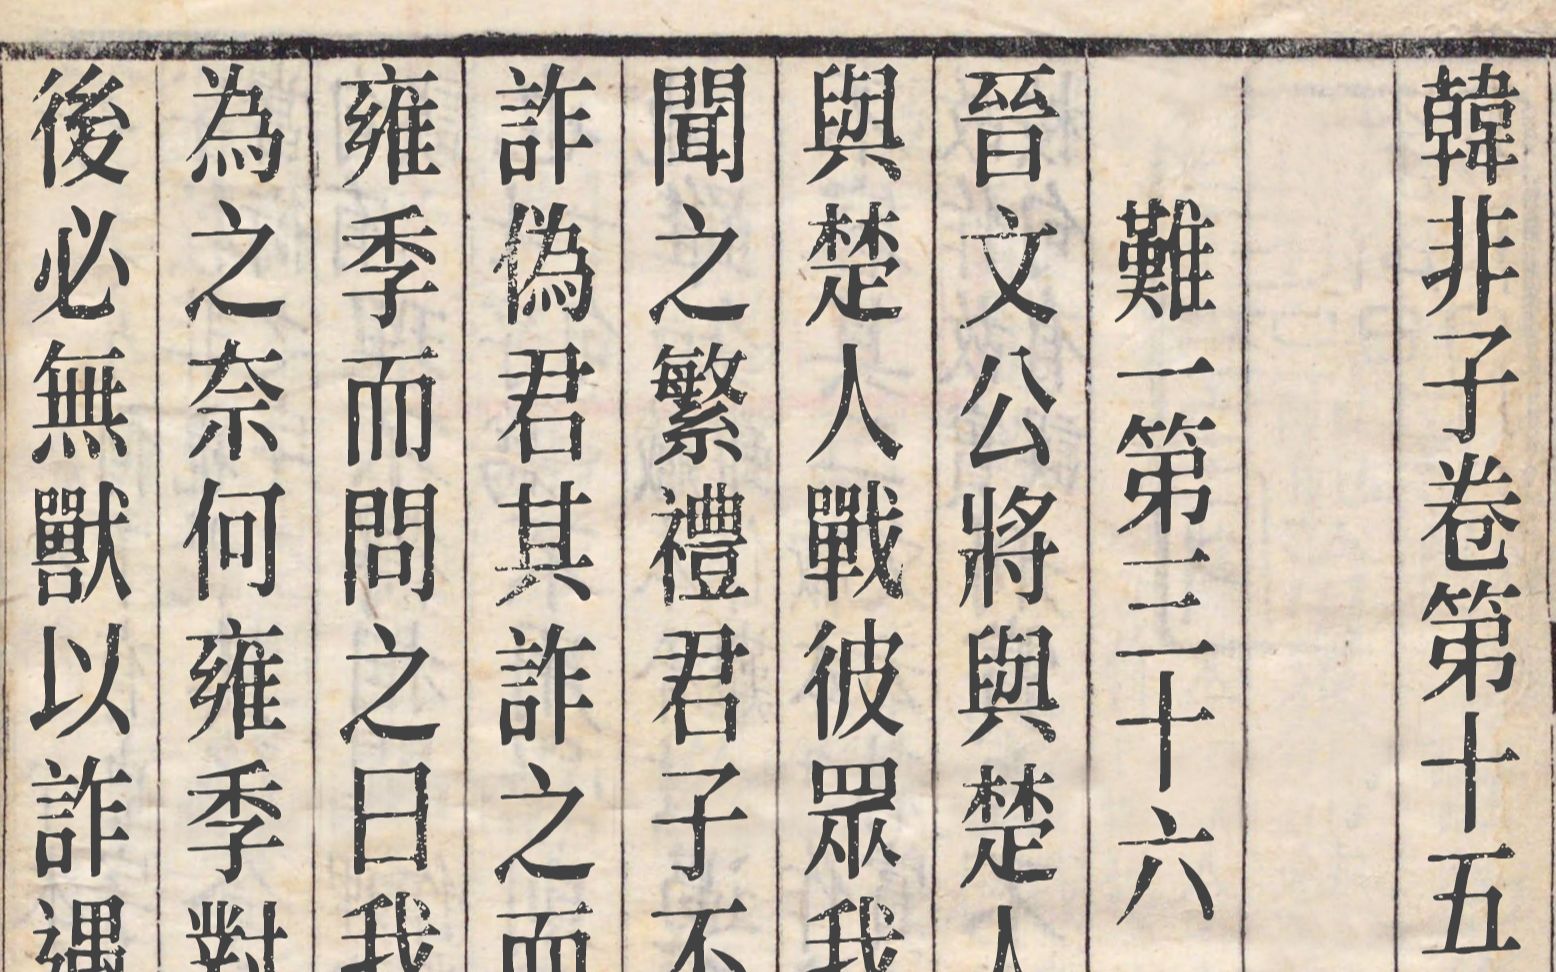 韓非子卷第十五
難一第三十六
晉文公將與楚人
與楚人戰彼眾我
聞之繁禮君子不
詐偽君其詐之而
雍季而問之曰我
為之奈何雍季對
後必無獸以詐遇